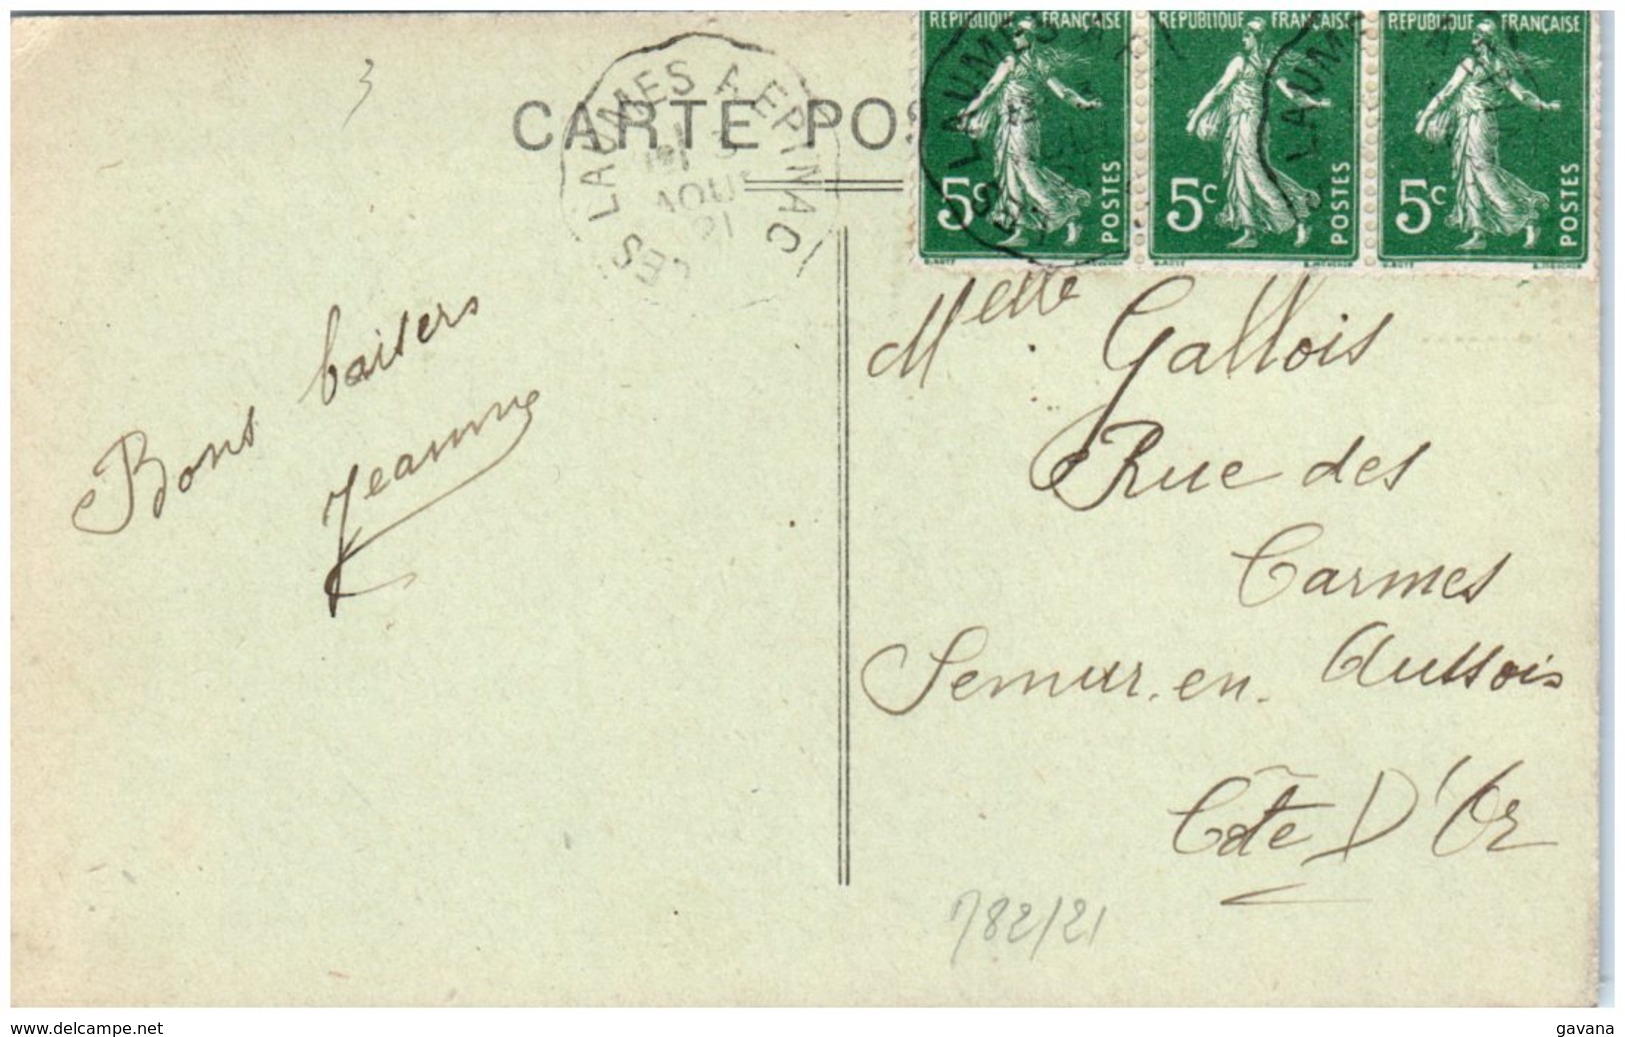 3
CARTE POS
LES LAUMES A EPINAC
AOUT
21
REPUBLIQUE FRANÇAISE
5c POSTES
REPUBLIQUE FRANÇAISE
5c POSTES
REPUBLIQUE FRANÇAISE
5c POSTES
Bons baisers
Jeanne
Melle Gallois
Rue des
Carmes
Semur.en. Aussois
Côte D'Or
782/21
www.delcampe.net
gavana